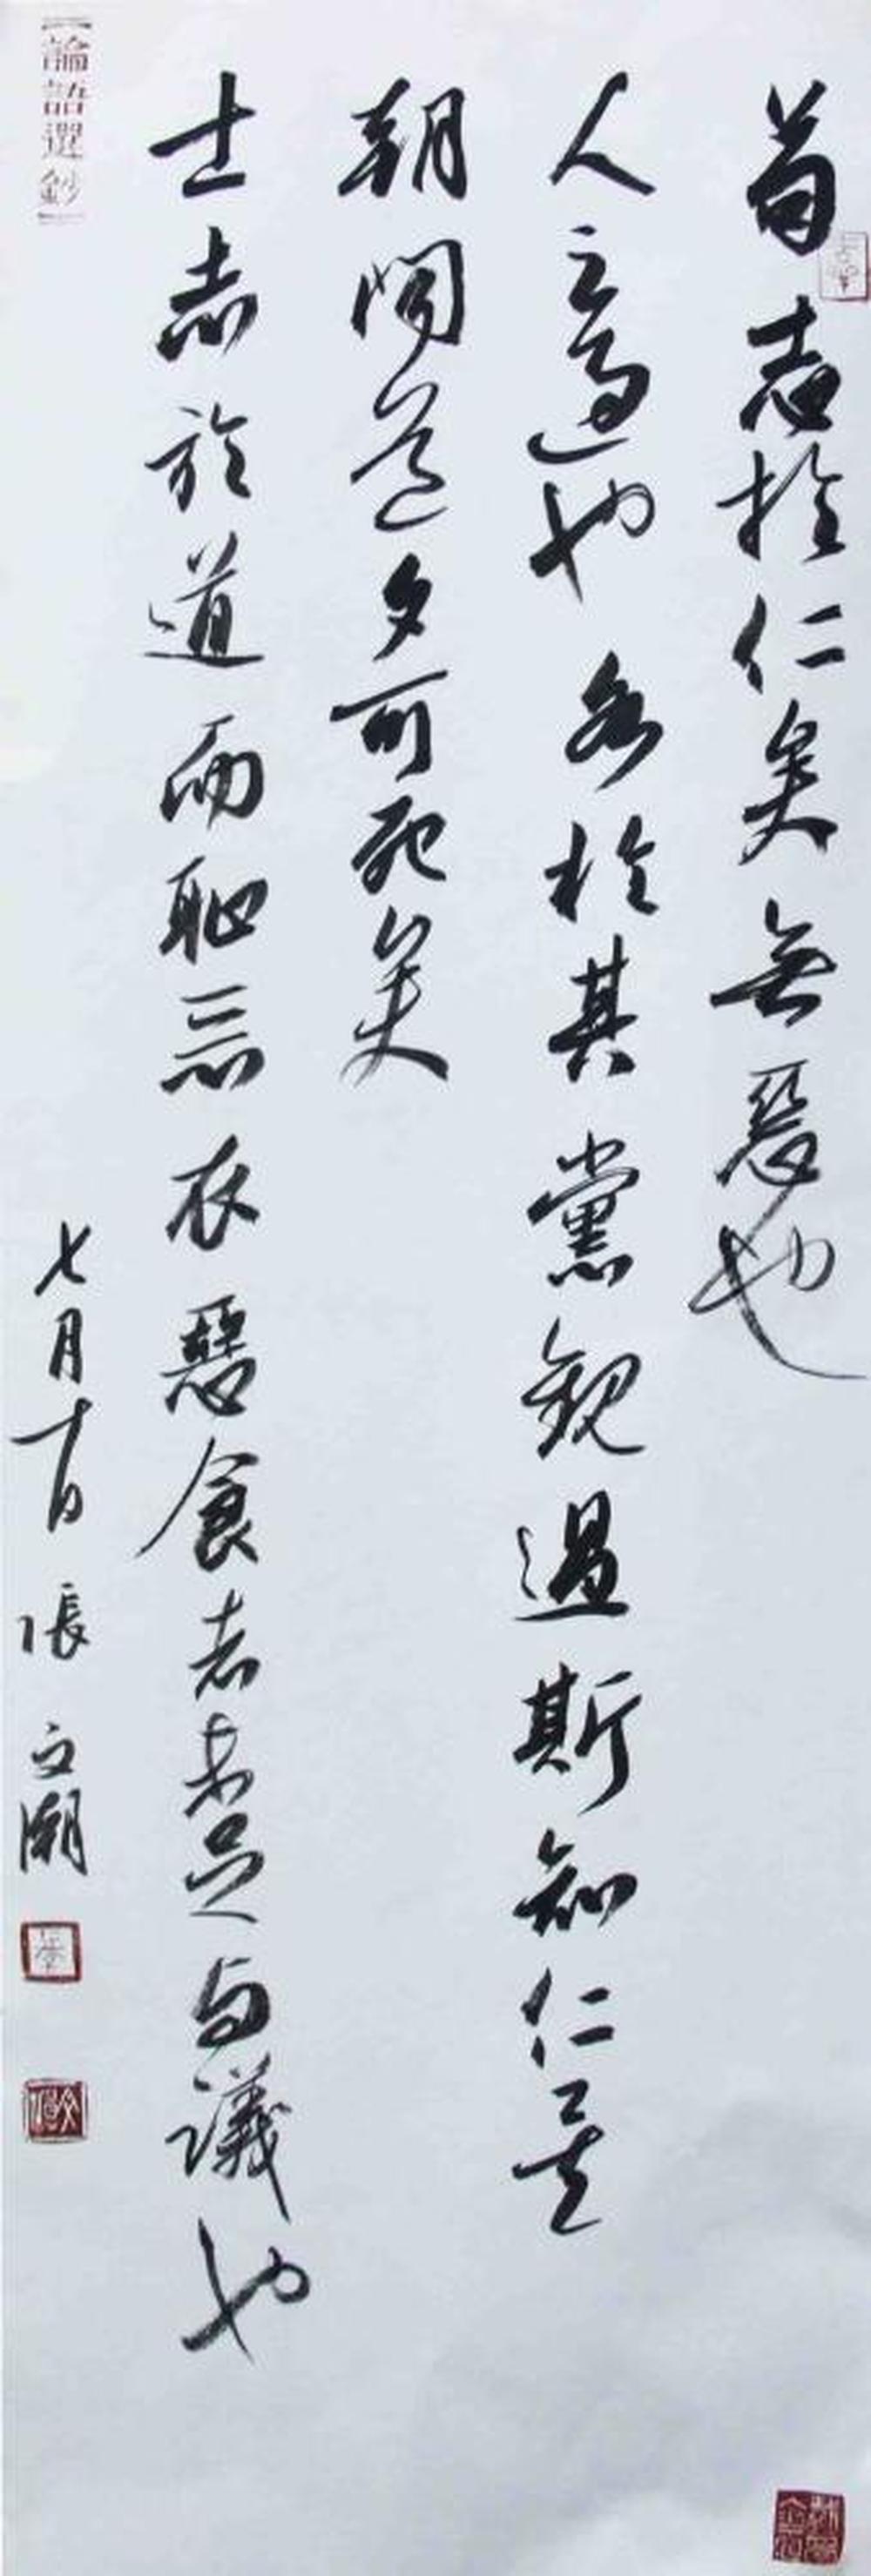 苟志於仁矣無惡也
人之過也各於其黨觀過斯知仁矣
朝聞道夕可死矣
士志於道而耻惡衣惡食者未足与議也
【論語選鈔】
七月十日 張文潮